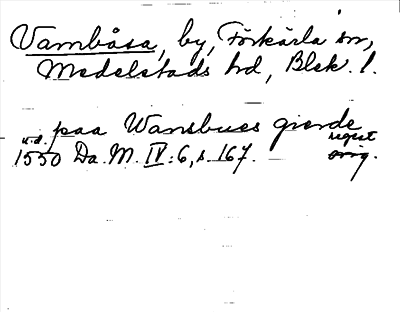 Vambåsa, by, Förkärla sn,
Medelstads hd, Blek. l.
paa Wansbues gierde
u.d. regest
1550 Da. M. IV: 6, s. 167. orig.